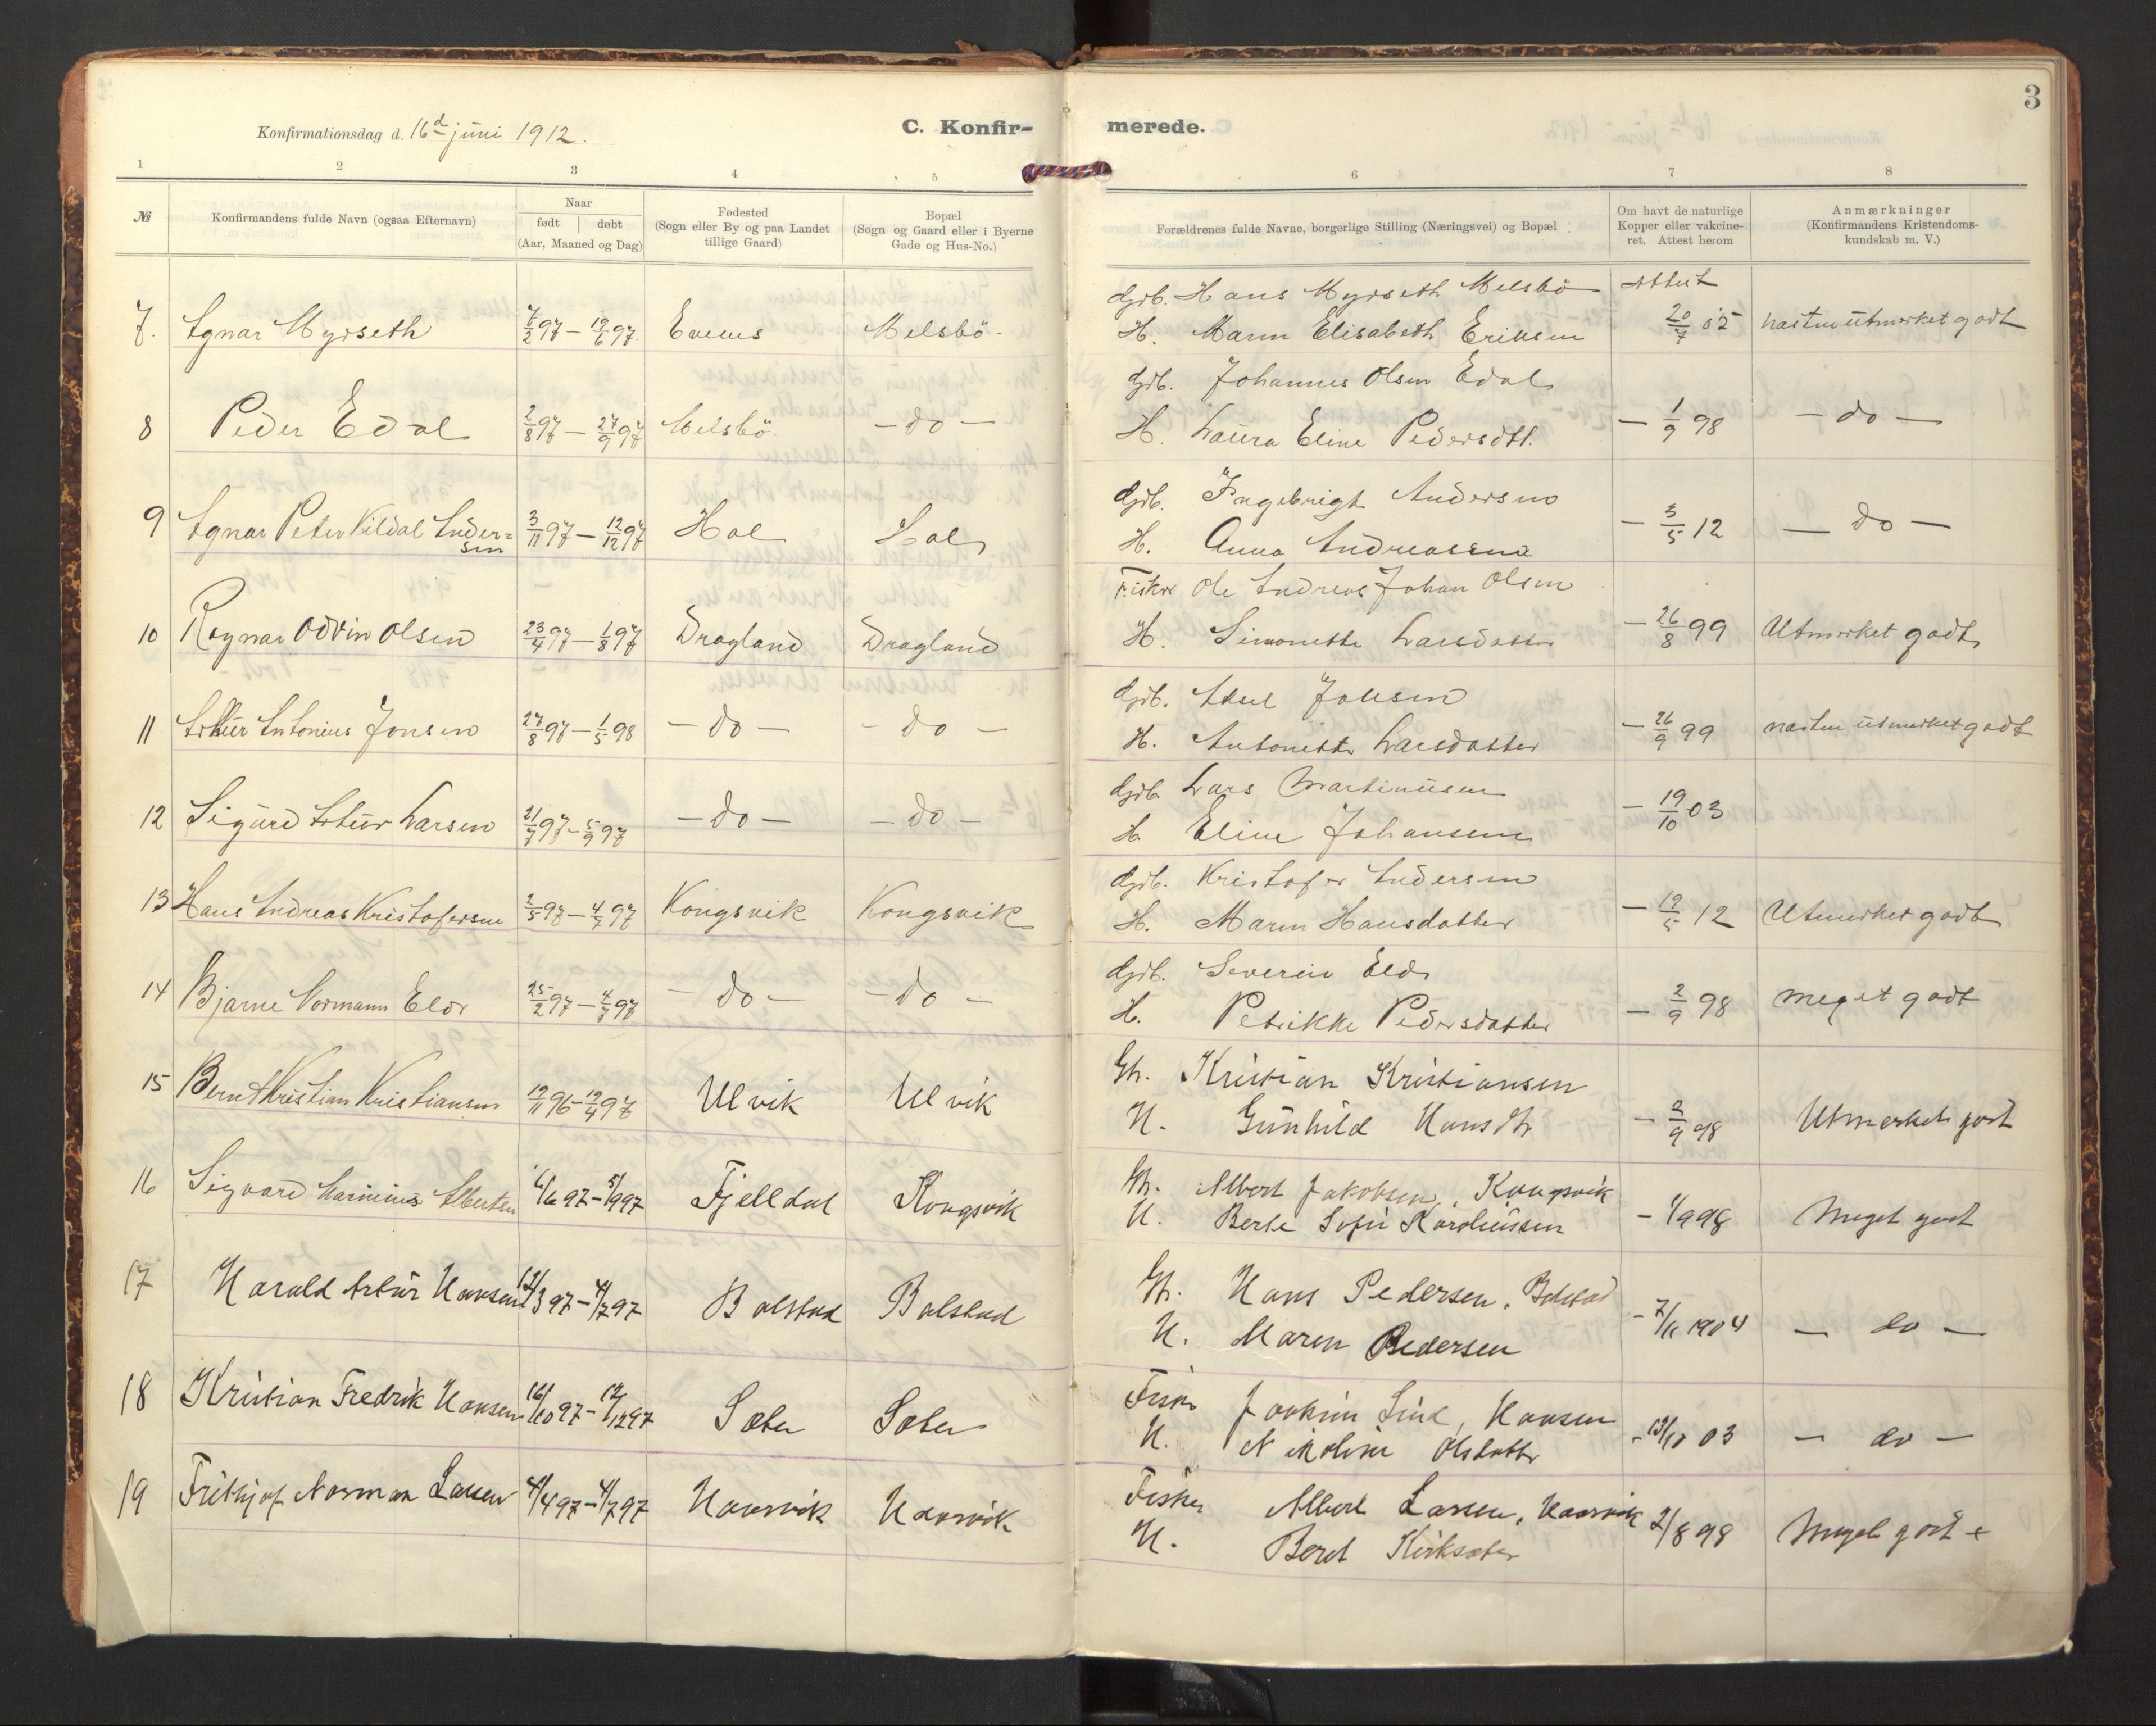 3
Konfirmationsdag d. 16d juni 1912.
C. Konfir-
merede.
1 2 3 4 5 6 7 8
№
Konfirmandens fulde Navn (ogsaa Efternavn)
Naar
født | døbt
(Aar, Maaned og Dag)
Fødested
(Sogn eller By og paa Landet
tillige Gaard)
Bopæl
(Sogn og Gaard eller i Byerne
Gade og Hus-No.)
Forældrenes fulde Navne, borgerlige Stilling (Næringsvei) og Bopæl
Om havt de naturlige
Kopper eller vakcine-
ret. Attest herom
Anmærkninger
(Konfirmandens Kristendoms-
kundskab m. V.)
Gjdb. Hans Myrseth Melsbö Attest
7. Agnar Myrseth 7/2 97 – 19/6 97. Evenes Melsbö
H. Maren Elisabeth Eriksen 20/7 05 næsten utmerket godt
Gjdb. Johannes Olsen Edal
8 Peder Edal 2/8 97 – 27/9 97 Melsbö. – do –
H. Laura Eline Pedersdtt. – 1/9 98 – do –
Gjdb. Ingebrigt Andersen
9 Agnar Peter Kildal Ander= 3/11 97 – 12/12 97 Hol Hol
sen
H. Anna Andreassen – 3/5 12 – do –
Fisker Ole Andreas Johan Olsen
10 Ragnar Odvin Olsen 23/4 97 – 1/8 97 Dragland Dragland
H. Simonette Larsdatter – 26/8 99 Utmerket godt
Gjdb. Aksel Jonsen
11 Artur Antonius Jonsen 27/8 97 – 1/5 98 – do – – do –
H. Antonette Larsdatter – 26/9 99 næsten utmerket godt
Gjdb. Lars Martinusen
12 Sigurd Artur Larsen 21/7 97 – 5/9 97 – do – – do –
H. Eline Johansen – 19/10 03
Gjdb. Kristofer Andersen
13 Hans Andreas Kristofersen 2/5 97 – 4/7 97 Kongsvik Kongsvik
H. Maren Hansdatter – 19/5 12 Utmerket godt
Gjdb. Severin Elde
14 Bjarne Normann Elde 25/2 97 – 4/7 97 – do – – do –
H. Petrikke Pedersdatter – 2/9 98 meget godt
Gb. Kristian Kristiansen
15 Bernt Kristian Kristiansen 12/11 96 – 19/4 97 Ulvik Ulvik
H. Gunhild Hansdtr – 2/9 98 Utmerket godt
Gb. Albert Jakobsen, Kongsvik
16 Sigvard Marinius Albertsen 6/6 97 – 5/9 97 Fjelldal Kongsvik
H. Berte Sofie Karoliussen – 1/9 98 Meget godt
Gb. Hans Pedersen, Balstad
17 Harald Artur Hansen 12/3 97 – 4/7 97 Balstad Balstad
H. Maren Pedersen – 7/11 1904 – do –
Fisker Joakim Lind, Hansen
18 Kristian Fredrik Hansen 16/10 97 – 12/12 97 Sæter Sæter
H. Nikoline Olsdatter – 13/10 03 – do –
Fisker Albert Larsen, Haarvik
19 Frithjof Norman Larsen 4/4 97 – 4/7 97 Haarvik Haarvik
H. Beret Kirksæter 2/8 98 Meget godt +